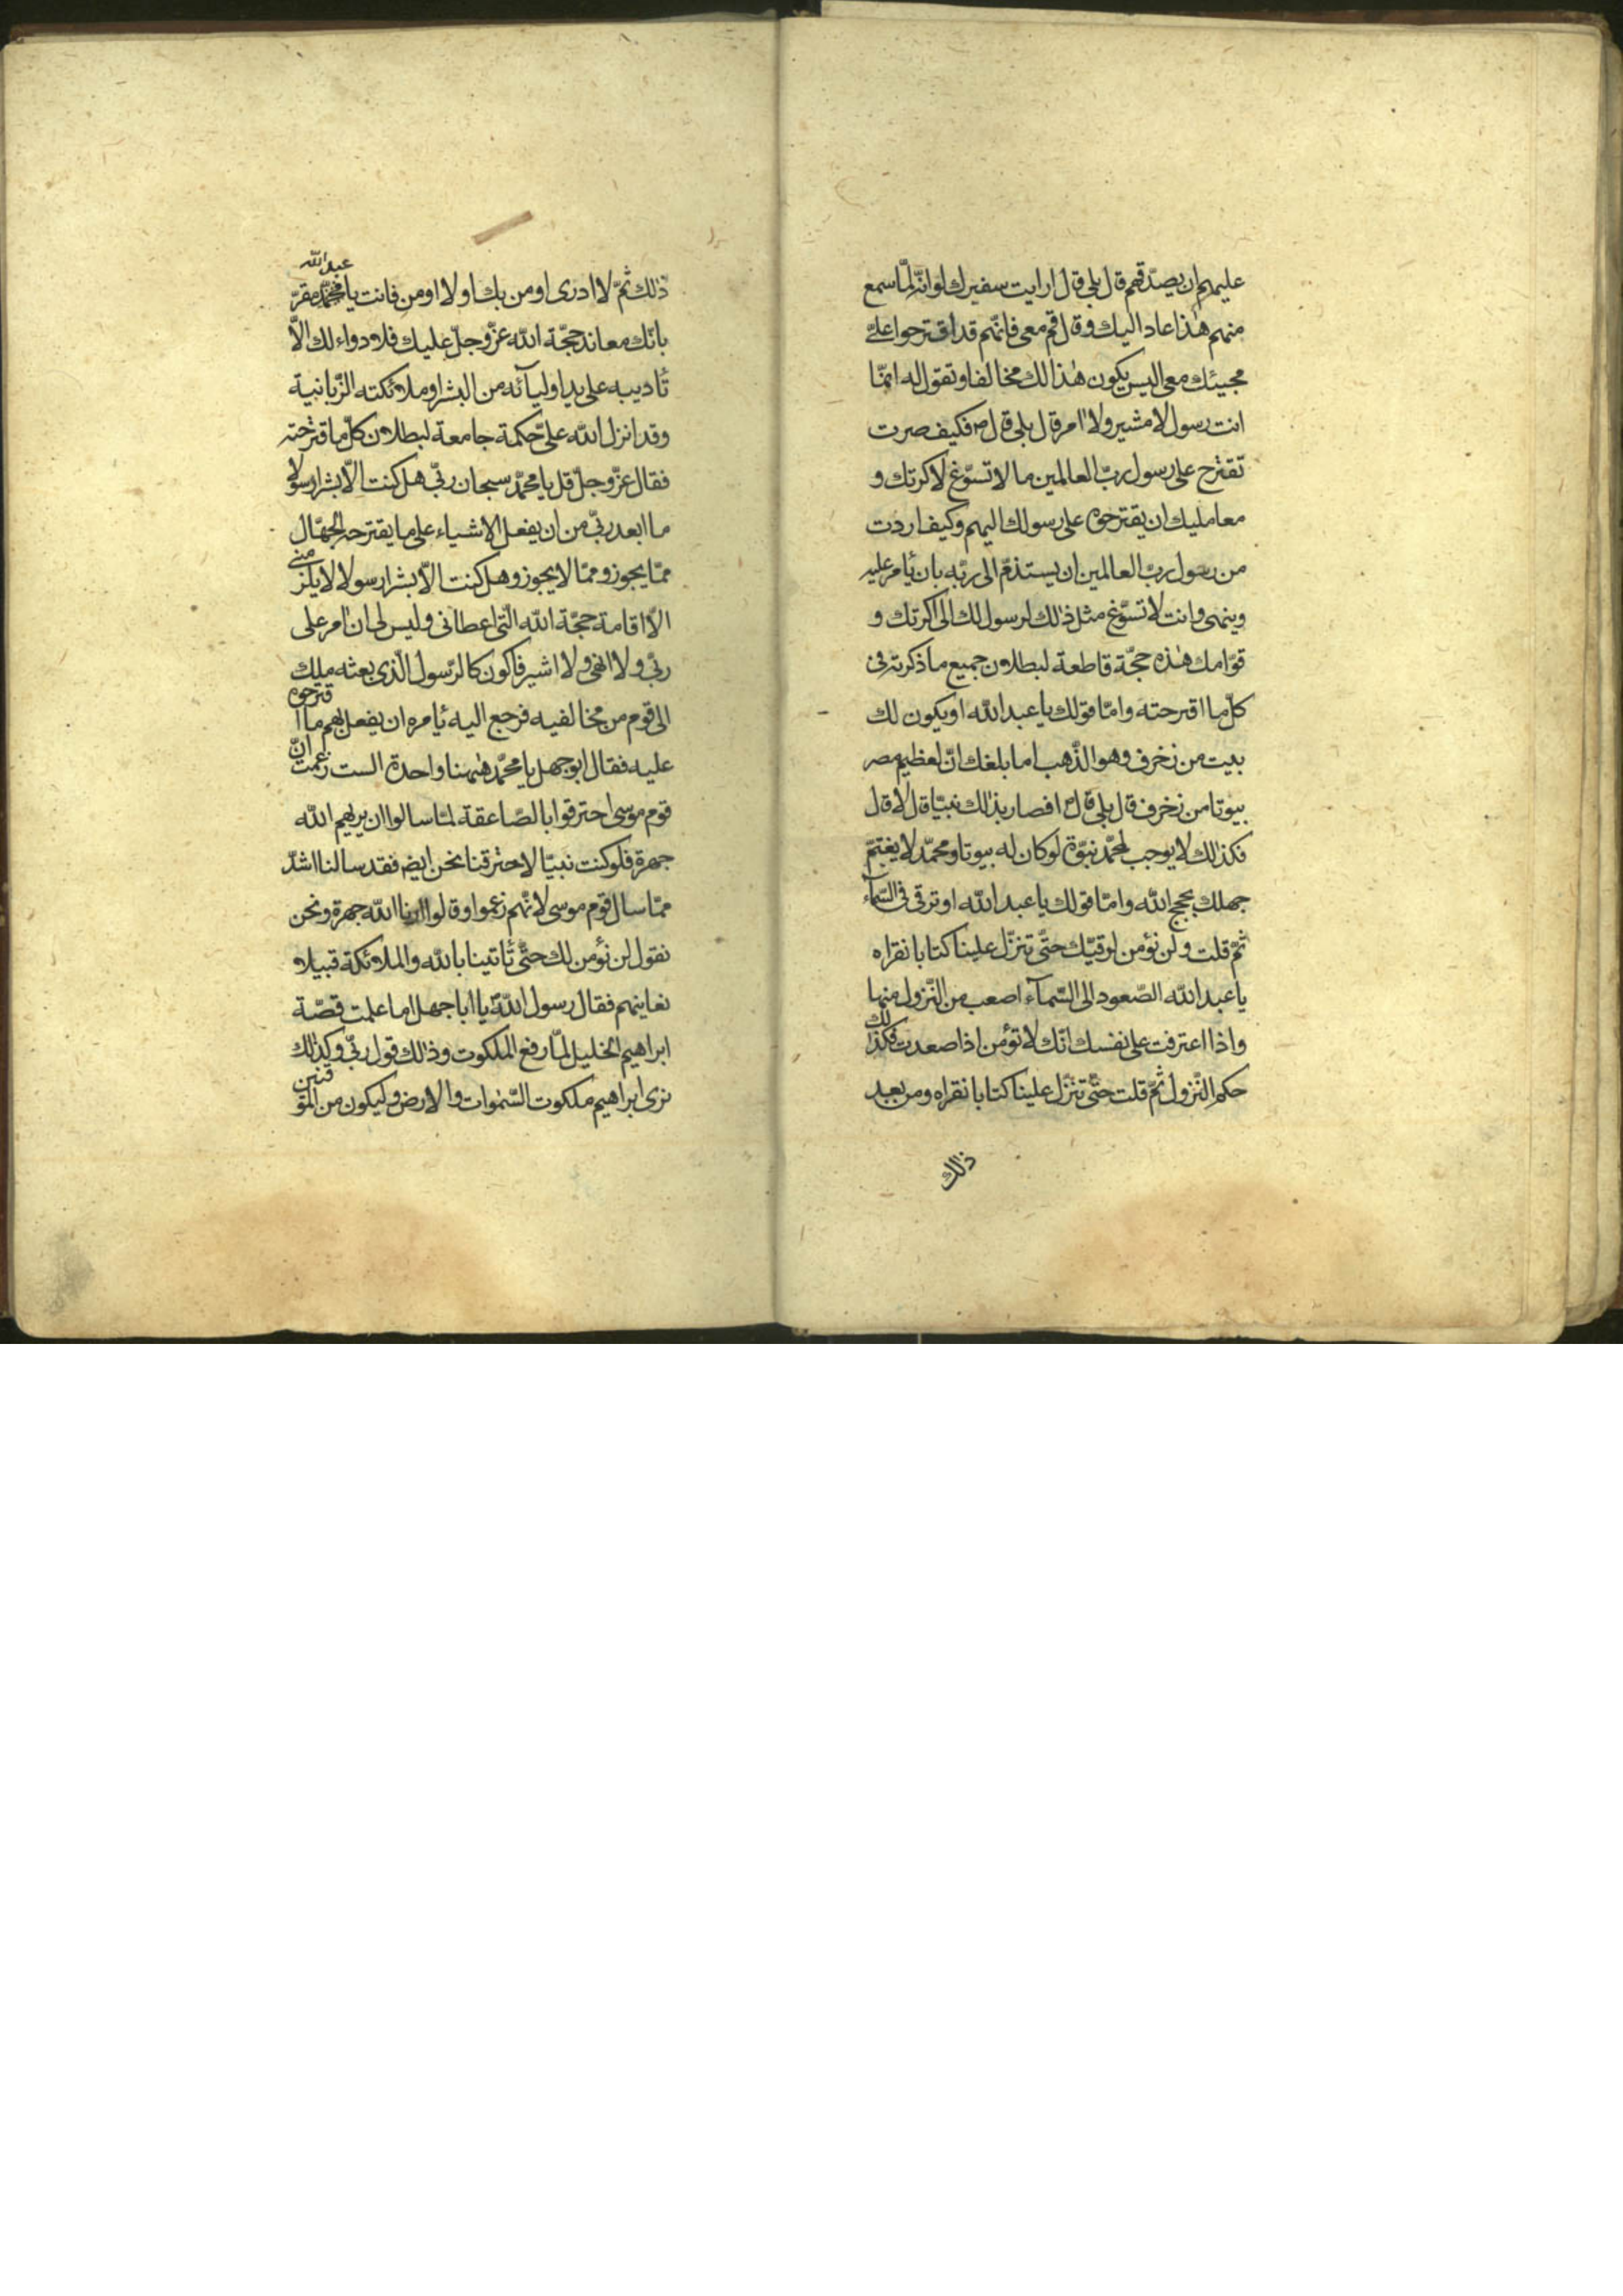 عليهم ان يصدّقهم قال بلى قال ارايت سفيرك لو انّه لمّا سمع
منهم هذا عاد اليك وقال قم معى فانّهم قد اقترحوا علىّ
مجيئك معى اليس يكون هذا لك مخالفا وتقول له انمّا
انت رسول لا مشير ولا امر قال بلى قال ص فكيف صرت
تقترح على رسول ربّ العالمين ما لا تسوّغ لاكرتك و
معامليك ان يقترحوه على رسولك اليهم وكيف اردت
من رسول ربّ العالمين ان يستذمّ الى ربّه بان يأمر عليه
وينهى وانت لا تسوّغ مثل ذلك لرسول لك الى اكرتك و
قوّامك هذه حجّة قاطعة لبطلان جميع ما ذكرته فى
كلّ ما اقترحته وامّا قولك يا عبد الله او يكون لك
بيت من زخرف وهو الذّهب اما بلغك انّ لعظيم مصر
بيوتا من زخرف قال بلى قال افصار بذلك نبيّا قال لا قال
فكذلك لا يوجب لمحمّد نبوّة لو كان له بيوتا ومحمّد لا يغتمّ
جهلك بحجج الله وامّا قولك يا عبد الله او ترقى فى السّمآء
ثمّ قلت ولن نؤمن لرقيّك حتّى تنزّل علينا كتابا نقراه
يا عبد الله الصّعود الى السّمآء اصعب من النّزول منها
واذا اعترفت على نفسك انّك لا تؤمن اذا صعدت فكذلك
حكم النّزول ثمّ قلت حتّى تنزّل علينا كتابا نقراه ومن بعد
ذلك
عبد الله
ذلك ثمّ لا ادرى اومن بك او لا اومن فانت يا محمّد مقرّ
بانّك معاند حجّة الله عزّ وجلّ عليك فلا دواء لك الّا
تأديبه على يد اوليآئه من البشر او ملائكته الزّبانية
وقد انزل الله علىّ حكمة جامعة لبطلان كلّ ما اقترحته
فقال عزّ وجلّ قل يا محمّد سبحان ربّى هل كنت الّا بشرا رسولا
ما ابعد ربّى من ان يفعل الاشياء على ما يقترحه الجهّال
ممّا يجوز وممّا لا يجوز وهل كنت الّا بشرا رسولا لا يلزمنى
الّا اقامة حجّة الله الّتى اعطانى وليس لى ان امر على
ربّى ولا انهى ولا اشير فاكون كالرّسول الّذى بعثه ملك
الى قوم من مخالفيه فرجع اليه يأمره ان يفعل بهم ما اقترحوه
عليه فقال ابو جهل يا محمّد ههنا واحدة الست زعمت انّ
قوم موسى احترقوا بالصّاعقة لمّا سالوا ان يريهم الله
جهرة فلو كنت نبيّا لاحترقنا نحن ايض فقد سالنا اشدّ
ممّا سال قوم موسى لانّهم زعموا وقالوا ارنا الله جهرة ونحن
نقول لن نؤمن لك حتّى تأتينا بالله والملائكة قبيلا
نعاينهم فقال رسول الله يا ابا جهل اما علمت قصّة
ابراهيم الخليل لمّا رفع الملكوت وذلك قول ربّى وكذلك
نرى ابراهيم ملكوت السّموات والارض وليكون من الموقنين